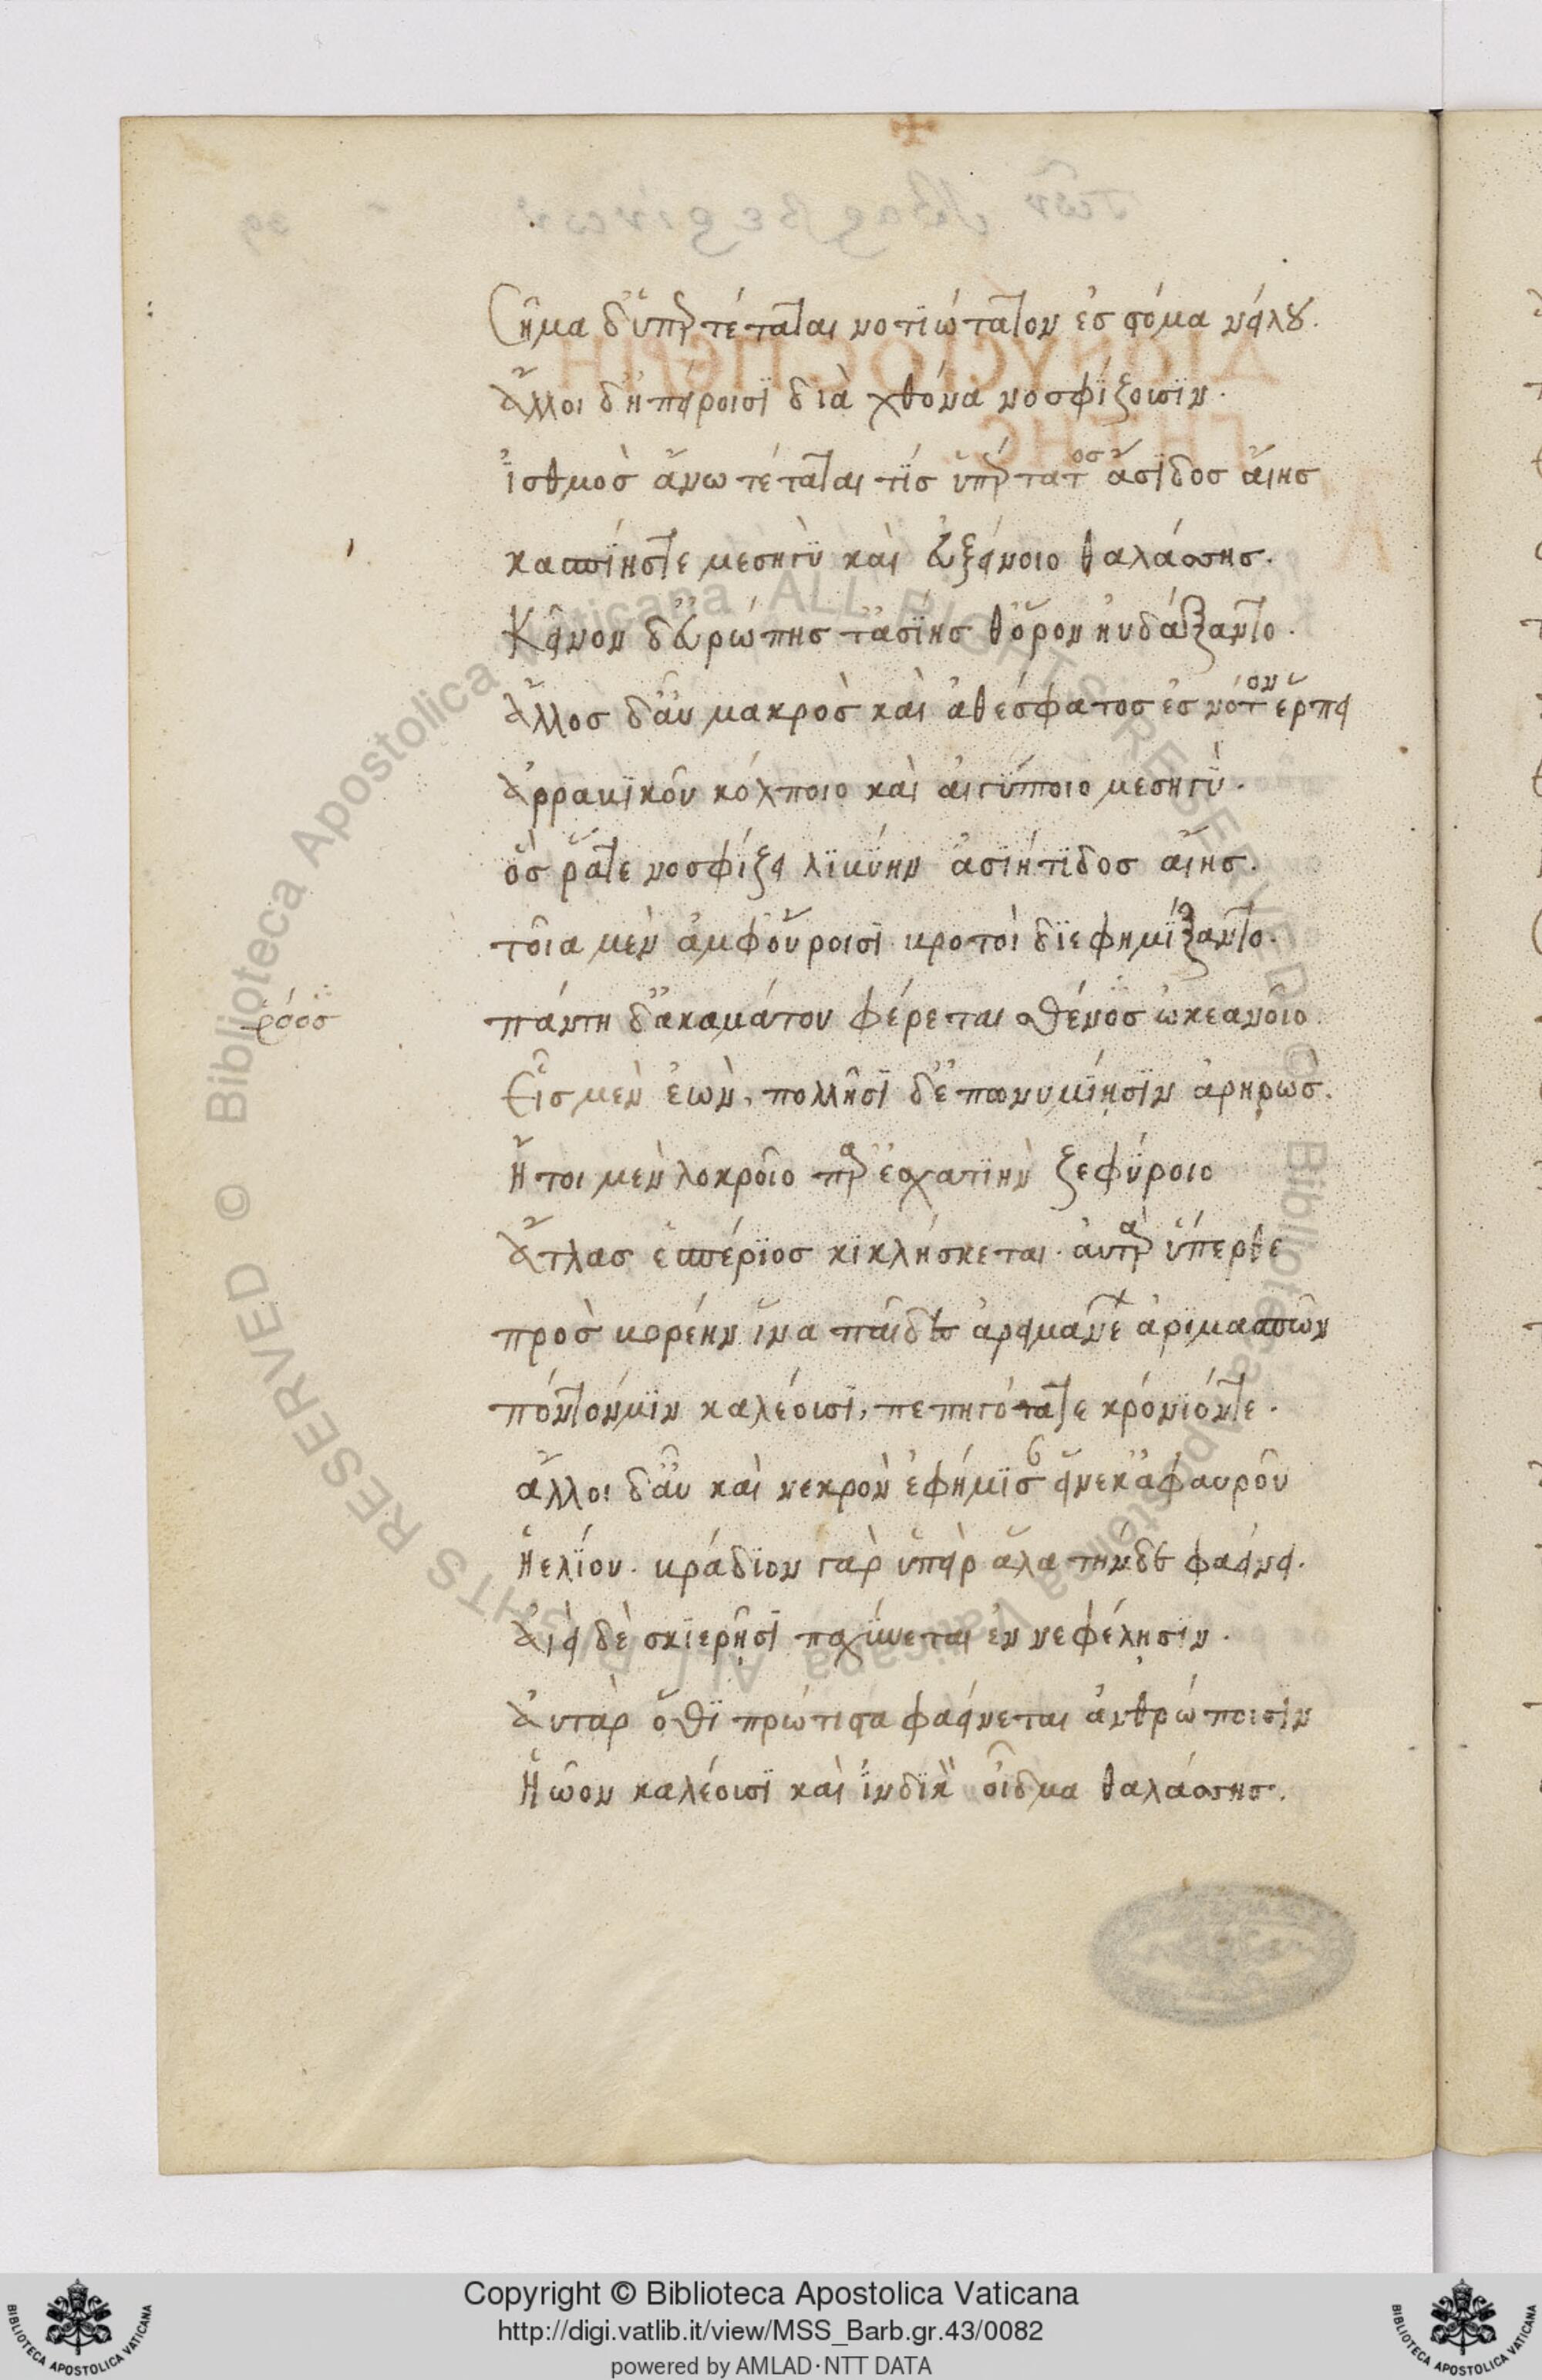 Σῆμα δ' ὑπερτέταται νοτιώτατον ἐς στόμα νείλου.
ἄλλοι δ' ἠπείροισι διὰ χθόνα νοσφίζουσιν.
ἰσθμὸς ἄνω τέταταί τις ὑπέρτατος ἀσίδος αἴης
κασπίης τε μεσηγὺ καὶ εὐξείνοιο θαλάσσης.
Κεῖνον δ' εὐρώπης τ' ἀσίης θ' ὅρον ηὐδάξαντο.
ἄλλος δ' αὖ μακρὸς καὶ ἀθέσφατος ἐς νότον ἕρπει
ἀρραβικοῦ κόλποιο καὶ αἰγύπτοιο μεσηγὺ.
ὅς ῥά τε νοσφίζει λιβύην ἀσιήτιδος αἴης.
τοῖα μὲν ἀμφ' οὔροισι βροτοὶ διεφημίξαντο.
ῥόος
πάντη δ' ἀκαμάτου φέρεται σθένος ὠκεανοῖο
Εἷς μὲν ἐὼν, πολλῇσι δ' ἐπωνυμίῃσιν ἀρηρὼς.
Ἤτοι μὲν λοκροῖο παρ' ἐσχατιὴν ζεφύροιο
ἄτλας ἑσπέριος κικλήσκεται. αὐτὰρ ὕπερθε
πρὸς βορέην ἵνα παῖδες ἀρειμανέων ἀριμασπῶν
πόντον μιν καλέουσι, πεπηγότα τε κρόνιόν τε.
ἄλλοι δ' αὖ καὶ νεκρὸν ἐφήμισαν εἵνεκ' ἀφαυροῦ
Ἠελίου. βράδιον γὰρ ὑπεὶρ ἅλα τήνδε φαείνει.
Αἰεὶ δὲ σκιερῇσι παχύνεται ἐν νεφέλῃσιν.
Αὐτὰρ ὅθι πρώτιστα φαείνεται ἀνθρώποισιν
Ἠῶον καλέουσι καὶ ἰνδικὸν οἶδμα θαλάσσης.
Copyright © Biblioteca Apostolica Vaticana
http://digi.vatlib.it/view/MSS_Barb.gr.43/0082
powered by AMLAD·NTT DATA